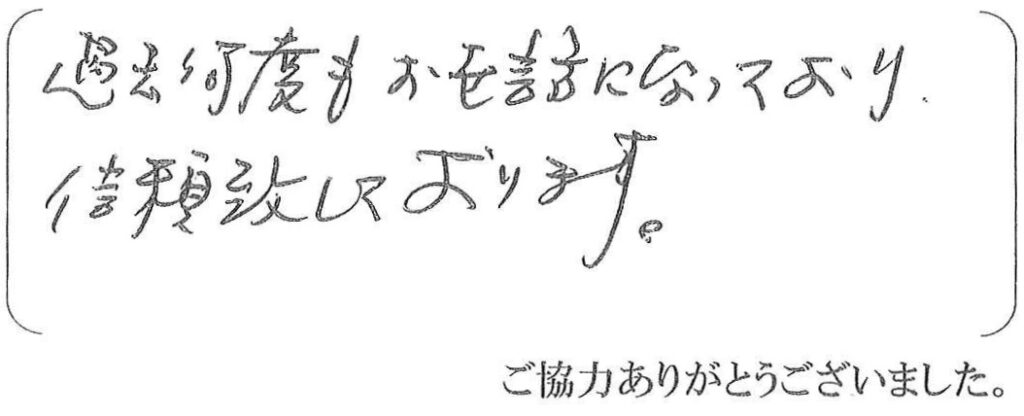 過去何度もお世話になっており
信頼致しております。
ご協力ありがとうございました。